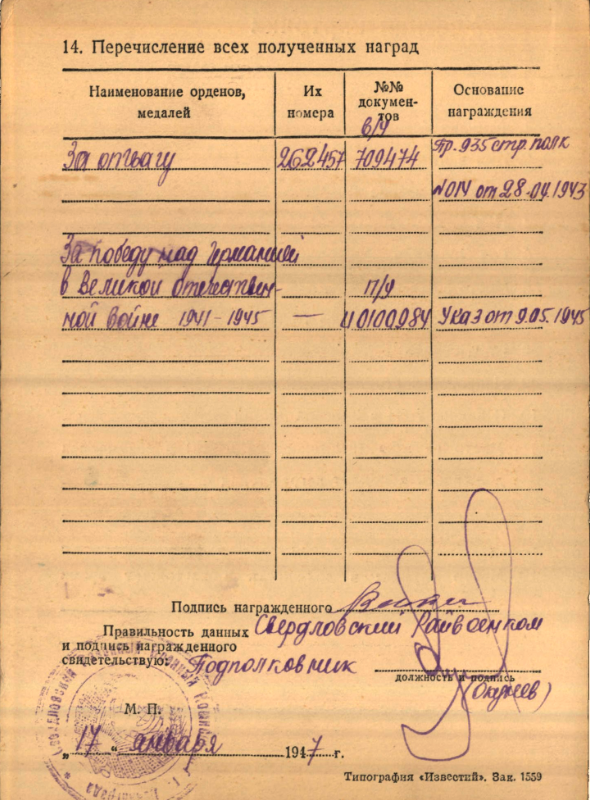 14. Перечисление всех полученных наград
Наименование орденов, медалей
Их номера
№№ документов
Основание награждения
За отвагу 262457 в/у 709474 Пр. 935 стр. полк
№ 014 от 28.04.1943
За победу над Германией
в Великой отечествен- п/у
ной войне 1941-1945 — 0100984 Указ от 9.05.1945
Подпись награжденного
Правильность данных Свердловский Райвоенком
и подпись награжденного
свидетельствую: Подполковник
должность и подпись
М. П.
„17“ января 1947 г.
Типография «Известий». Зак. 1559